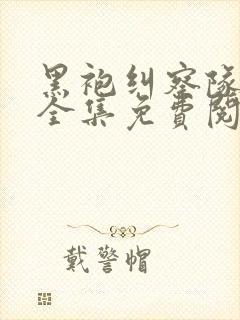 黑袍纠察队
全集免費閱
戴警帽